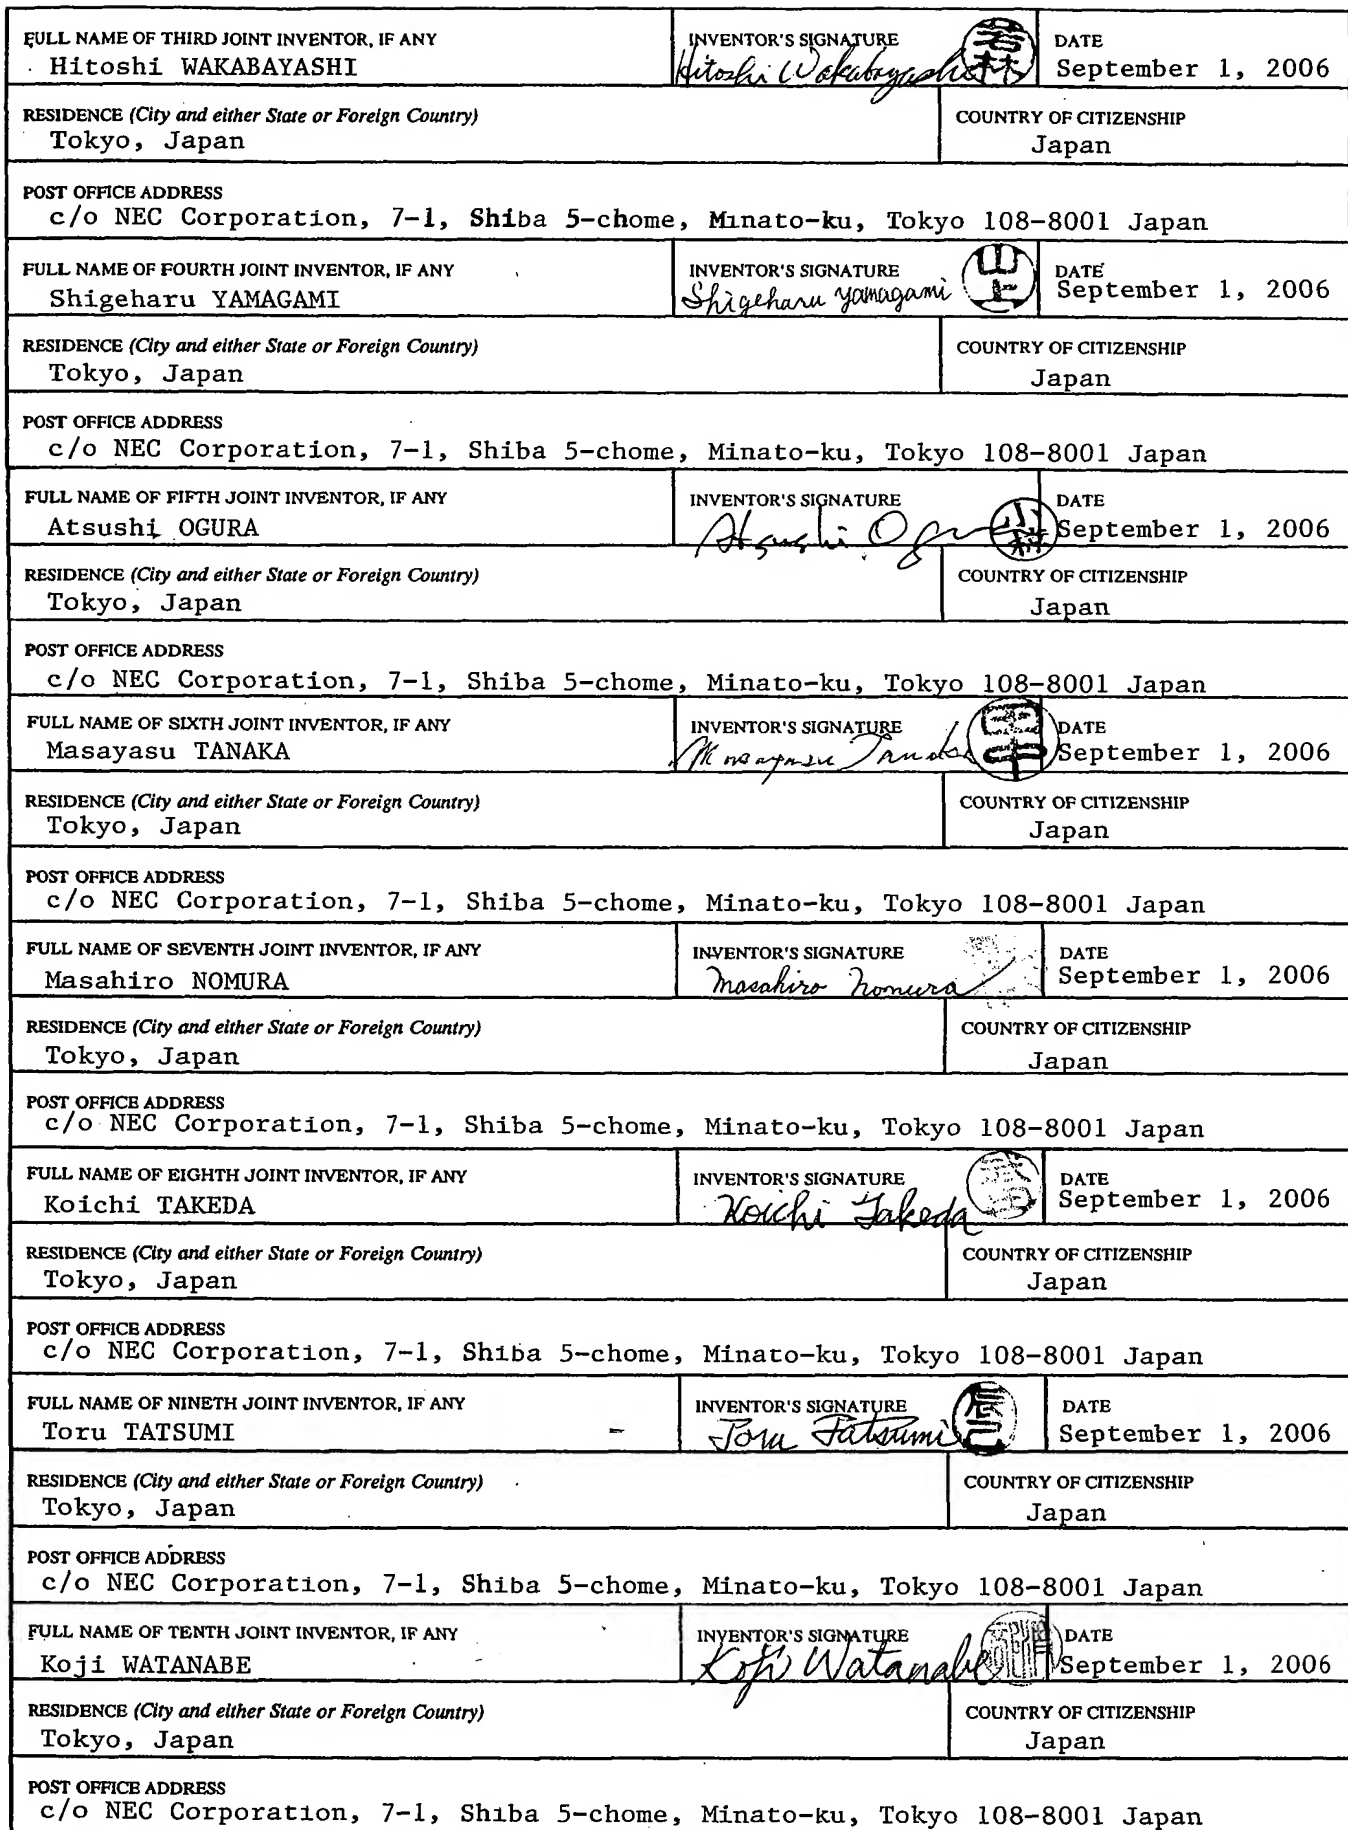 FULL NAME OF THIRD JOINT INVENTOR, IF ANY
Hitoshi WAKABAYASHI
INVENTOR'S SIGNATURE
Hitoshi Wakabayashi
若林
DATE
September 1, 2006
RESIDENCE (City and either State or Foreign Country)
Tokyo, Japan
COUNTRY OF CITIZENSHIP
Japan
POST OFFICE ADDRESS
c/o NEC Corporation, 7-1, Shiba 5-chome, Minato-ku, Tokyo 108-8001 Japan
FULL NAME OF FOURTH JOINT INVENTOR, IF ANY
Shigeharu YAMAGAMI
INVENTOR'S SIGNATURE
Shigeharu Yamagami
山上
DATE
September 1, 2006
RESIDENCE (City and either State or Foreign Country)
Tokyo, Japan
COUNTRY OF CITIZENSHIP
Japan
POST OFFICE ADDRESS
c/o NEC Corporation, 7-1, Shiba 5-chome, Minato-ku, Tokyo 108-8001 Japan
FULL NAME OF FIFTH JOINT INVENTOR, IF ANY
Atsushi OGURA
INVENTOR'S SIGNATURE
Atsushi Ogura
DATE
September 1, 2006
RESIDENCE (City and either State or Foreign Country)
Tokyo, Japan
COUNTRY OF CITIZENSHIP
Japan
POST OFFICE ADDRESS
c/o NEC Corporation, 7-1, Shiba 5-chome, Minato-ku, Tokyo 108-8001 Japan
FULL NAME OF SIXTH JOINT INVENTOR, IF ANY
Masayasu TANAKA
INVENTOR'S SIGNATURE
Masayasu Tanaka
田中
DATE
September 1, 2006
RESIDENCE (City and either State or Foreign Country)
Tokyo, Japan
COUNTRY OF CITIZENSHIP
Japan
POST OFFICE ADDRESS
c/o NEC Corporation, 7-1, Shiba 5-chome, Minato-ku, Tokyo 108-8001 Japan
FULL NAME OF SEVENTH JOINT INVENTOR, IF ANY
Masahiro NOMURA
INVENTOR'S SIGNATURE
Masahiro Nomura
DATE
September 1, 2006
RESIDENCE (City and either State or Foreign Country)
Tokyo, Japan
COUNTRY OF CITIZENSHIP
Japan
POST OFFICE ADDRESS
c/o NEC Corporation, 7-1, Shiba 5-chome, Minato-ku, Tokyo 108-8001 Japan
FULL NAME OF EIGHTH JOINT INVENTOR, IF ANY
Koichi TAKEDA
INVENTOR'S SIGNATURE
Koichi Takeda
武田
DATE
September 1, 2006
RESIDENCE (City and either State or Foreign Country)
Tokyo, Japan
COUNTRY OF CITIZENSHIP
Japan
POST OFFICE ADDRESS
c/o NEC Corporation, 7-1, Shiba 5-chome, Minato-ku, Tokyo 108-8001 Japan
FULL NAME OF NINETH JOINT INVENTOR, IF ANY
Toru TATSUMI
INVENTOR'S SIGNATURE
Toru Tatsumi
辰巳
DATE
September 1, 2006
RESIDENCE (City and either State or Foreign Country)
Tokyo, Japan
COUNTRY OF CITIZENSHIP
Japan
POST OFFICE ADDRESS
c/o NEC Corporation, 7-1, Shiba 5-chome, Minato-ku, Tokyo 108-8001 Japan
FULL NAME OF TENTH JOINT INVENTOR, IF ANY
Koji WATANABE
INVENTOR'S SIGNATURE
Koji Watanabe
DATE
September 1, 2006
RESIDENCE (City and either State or Foreign Country)
Tokyo, Japan
COUNTRY OF CITIZENSHIP
Japan
POST OFFICE ADDRESS
c/o NEC Corporation, 7-1, Shiba 5-chome, Minato-ku, Tokyo 108-8001 Japan